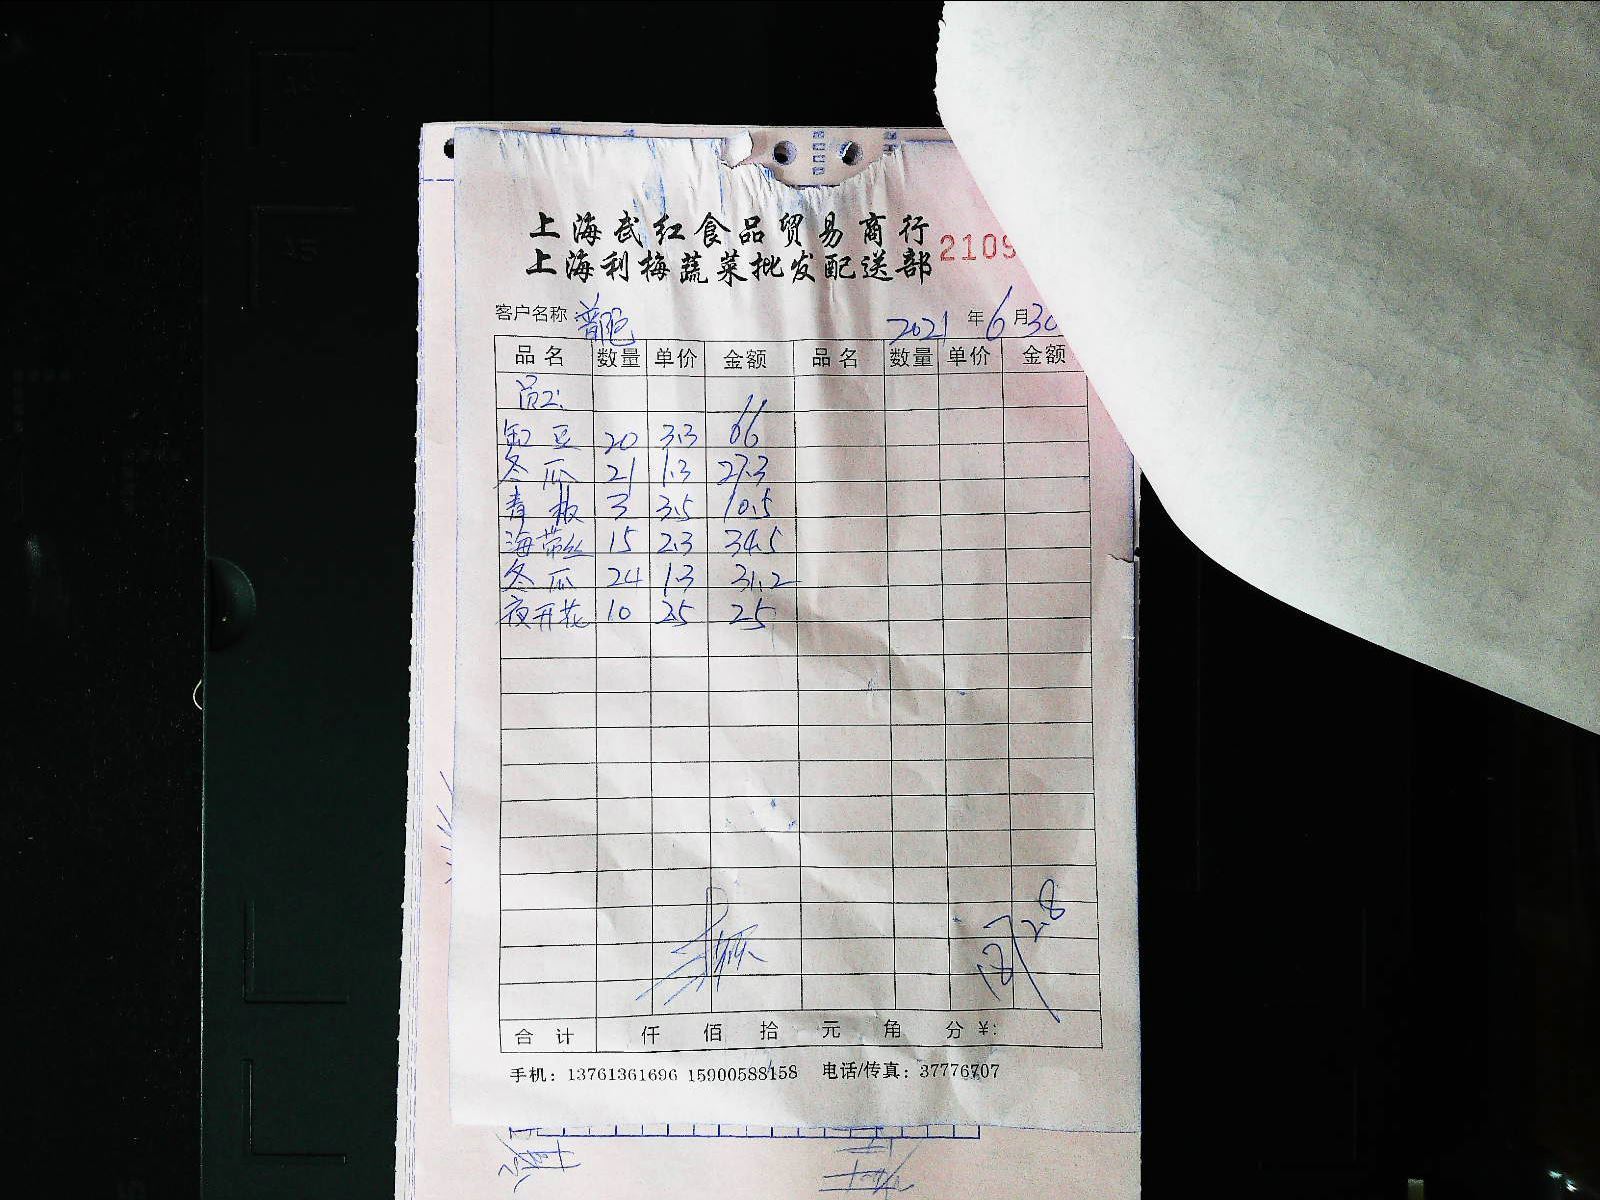 上海武红食品贸易商行
上海利梅蔬菜批发配送部
2109
客户名称 普陀 2021 年 6 月 30
品名 数量 单价 金额 品名 数量 单价 金额
员工
豇豆 20 3.3 66
冬瓜 21 1.3 27.3
青椒 3 3.5 10.5
海带丝 15 2.3 34.5
冬瓜 24 1.3 31.2
夜开花 10 2.5 25
合计 仟 佰 拾 元 角 分 ¥:
手机：13761361696 15900588158 电话/传真：37776707